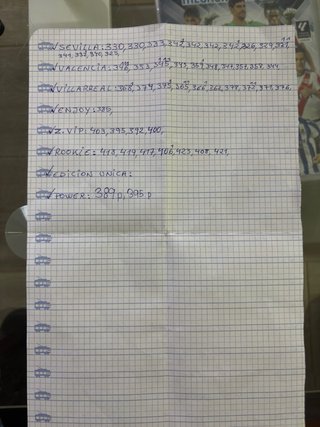 SEVILLA: 330, 330, 333, 342, 342, 342, 342, 326, 329, 331
341, 332, 340, 325,
VALENCIA: 348, 353, 343, 351, 348, 347, 352, 357, 344
VILLARREAL: 368, 374, 375, 365, 366, 362, 377, 372, 371, 376,
ENJOY: 385,
Z. VIP: 403, 395, 392, 400,
ROOKIE: 418, 419, 417, 406, 423, 408, 421,
EDICION UNICA:
POWER: 389 p, 395 p